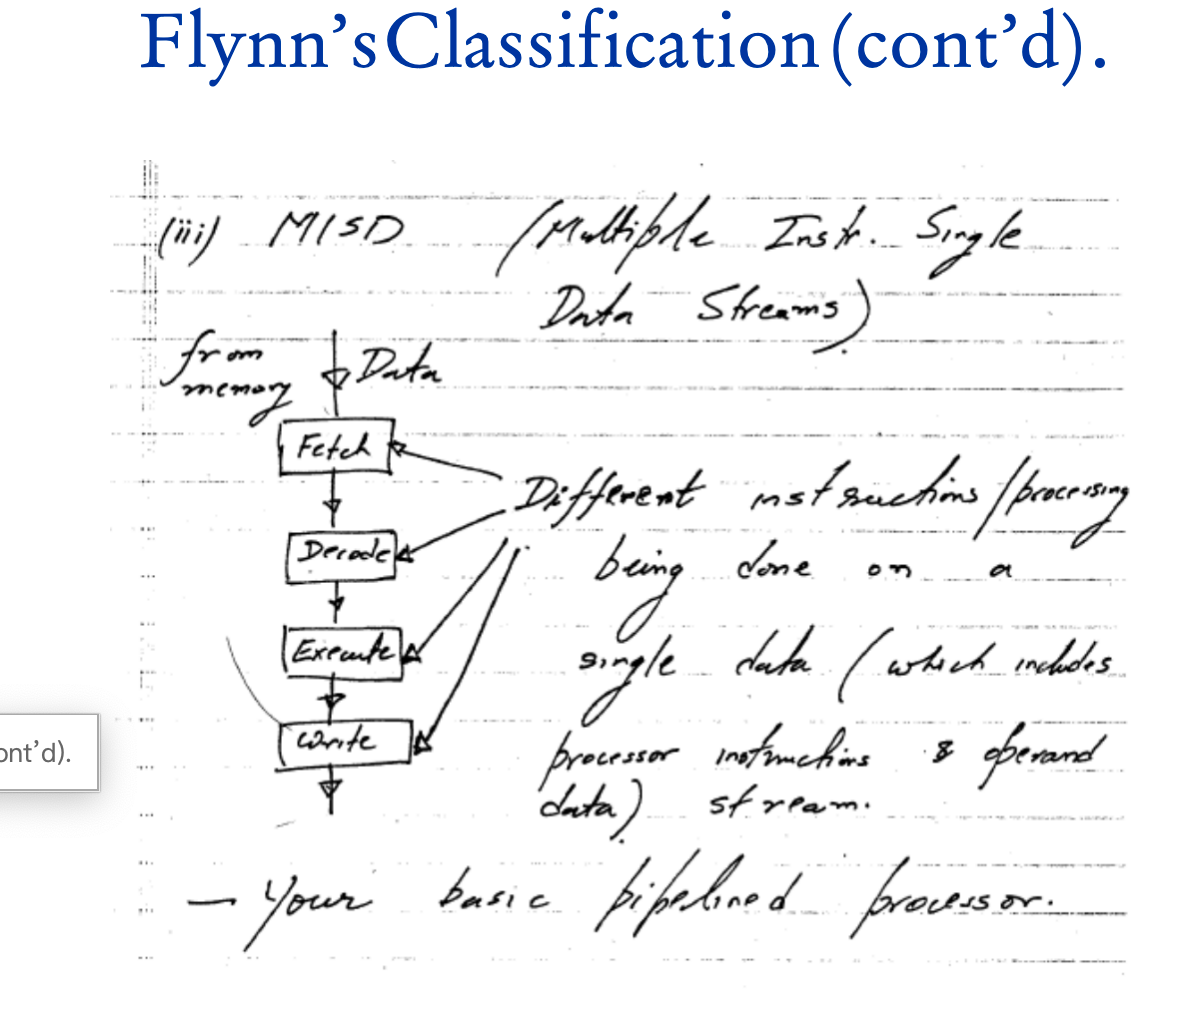 Flynn's Classification (cont'd).
(iii) MISD (Multiple Instr. Single
Data Streams)
from
memory
Data
Fetch
Decode
Execute
Write
Different instructions/processing
being done on a
single data (which includes
processor instructions & operand
data) stream.
— Your basic pipelined processor.
ont'd).